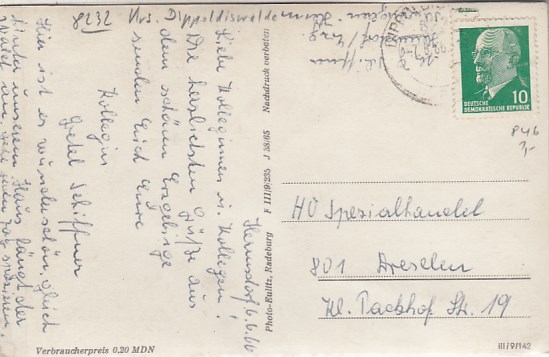 8232 Krs. Dippoldiswalde
Hermsdorf 6.6.66
Liebe Kolleginnen u. Kollegen!
Die herzlichsten Grüße aus
dem schönen Erzgebirge
senden Euch Eure
Kollegin
Gretel Schiffner
Hier ist es wunderschön. Gleich
hinter unserem Haus fängt der
Wald an.
Verbraucherpreis 0,20 MDN
Photo-Kulitz, Radeburg F III/9/235 J 38/65 Nachdruck verboten
DEUTSCHE
DEMOKRATISCHE REPUBLIK
10
P46
3,-
HO Spezialhandel
801 Dresden
Kl. Packhof Str. 19
III/9/142